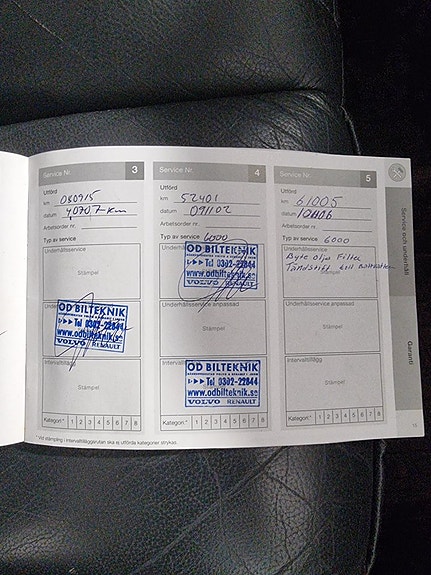 Service Nr. 3
Utförd
km 080915
datum 40707-km
Arbetsorder nr.
Typ av service
Underhållsservice
Stämpel
OD BILTEKNIK
Tel 0302-22844
www.odbilteknik.se
VOLVO RENAULT
Intervalltillägg
Stämpel
Kategori:* 1 2 3 4 5 6 7 8
Service Nr. 4
Utförd
km 52401
datum 091102
Arbetsorder nr.
Typ av service 6000
OD BILTEKNIK
Tel 0302-22844
www.odbilteknik.se
VOLVO RENAULT
Underhållsservice anpassad
Stämpel
Intervalltillägg
OD BILTEKNIK
Tel 0302-22844
www.odbilteknik.se
VOLVO RENAULT
Kategori:* 1 2 3 4 5 6 7 8
Service Nr. 5
Utförd
km 61005
datum
Arbetsorder nr.
Typ av service 6000
Byte olja Filter
Tändstift
Stämpel
Underhållsservice anpassad
Stämpel
Intervalltillägg
Stämpel
Kategori:* 1 2 3 4 5 6 7 8
* Vid stämpling i Intervalltilläggsrutan ska ej utförda kategorier strykas.
Service och underhåll
Garanti
15